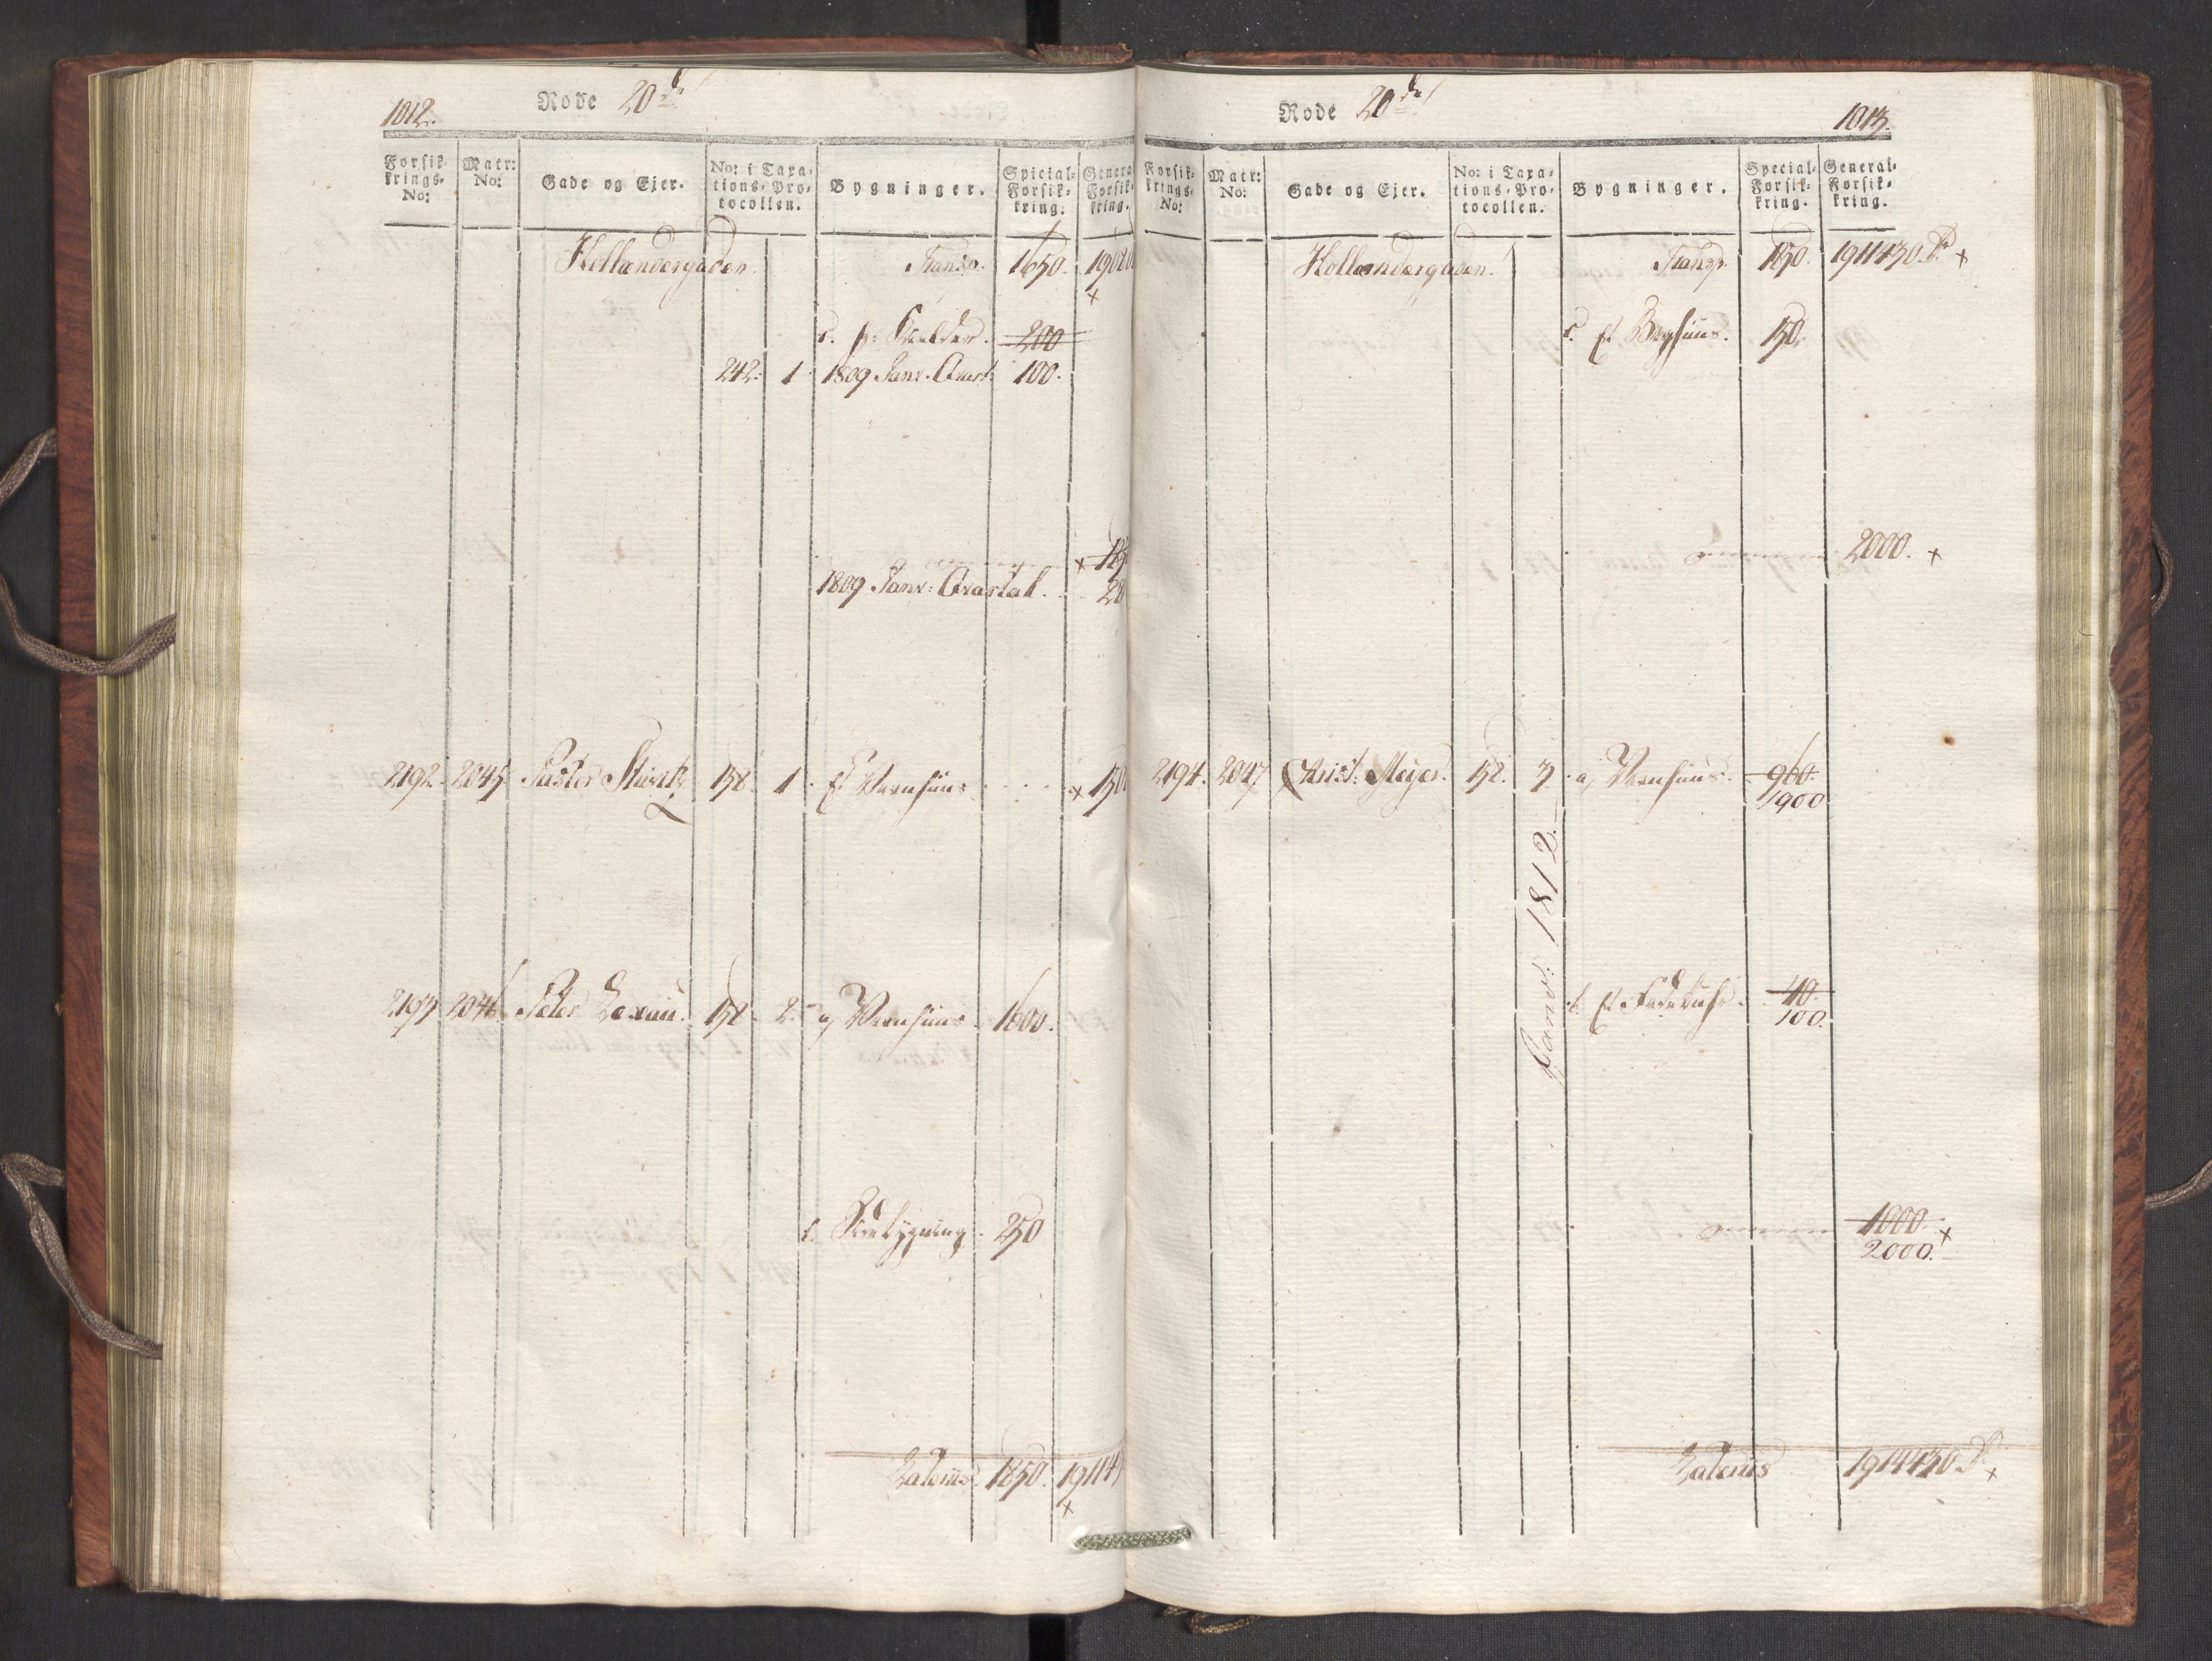 1012.
Rode 20de
Forsik-
krings-
No:
Matr:
No:
Gade og Ejer.
No: i Taxa-
tions-Pro-
tocollen.
Bygninger.
Spicial-
Forsik-
kring.
General
Forsik-
kring.
Hollandergaden. Transp. 1650.
x
c. 200
242. 1 1809 Janr. Qvart. 100.
x
1809 Janr: Qvartal.
2192. 2045 158. 1. Et Vaanhuus x
2193 2046. Peter 158. 2. a, Vaanhuus 1600.
b. Sidebygning 250
Lateris 1850.
x
Rode 20de
1013.
Forsik-
krings-
No:
Matr:
No:
Gade og Ejer.
No: i Taxa-
tions-Pro-
tocollen.
Bygninger.
Special-
Forsik-
kring.
General-
Forsik-
kring.
Hollandergaden. Transp. 1850. 1911430 x
c. Et Bryghuus. 150.
2000. x
2194. 2047 Christ. Meyer. 158. 3. a, Vaanhuus. 960.
1900
Janv: 1812.
b. Et 40.
100.
1000. x
2000.
Lateris 1914430 x